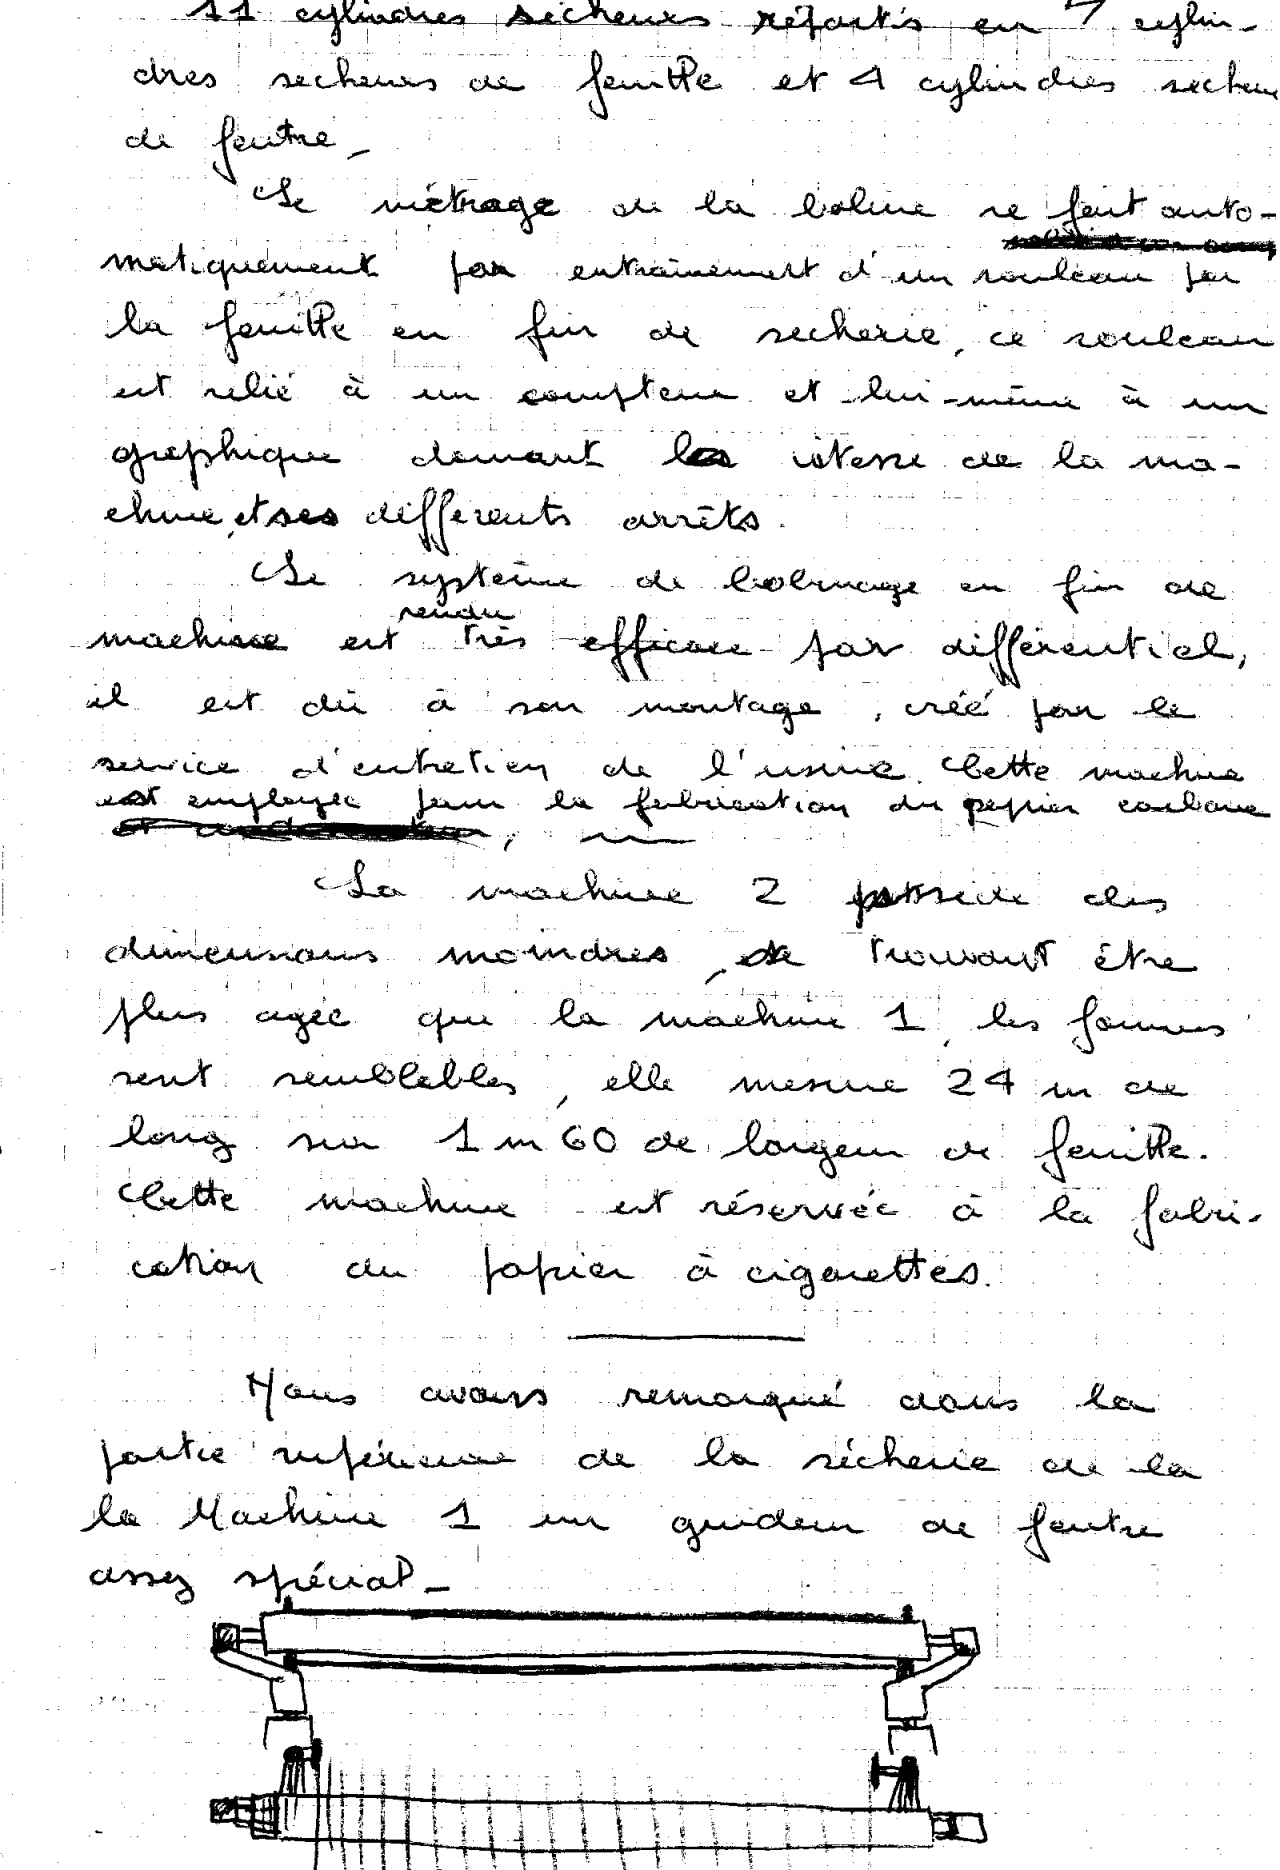 11 cylindres sécheurs répartis en 7 cylin-
dres secheurs de feuille et 4 cylindres secheur
de feutre_
Le métrage de la bobine se fait auto-
matiquement par entraînement d'un rouleau par
la feuille en fin de secherie, ce rouleau
est relié à un compteur et lui-même à un
graphique donnant la vitesse de la ma-
chine, et ses différents arrêts.
Le système de bobinage en fin de
rendu
machine est très efficace par différentiel,
il est dû à son montage, créé par le
service d'entretien de l'usine. Cette machine
est employée pour la fabrication du papier carbone
La machine 2 possède des
dimensions moindres, se trouvant être
plus agée que la machine 1, les formes
sont semblables, elle mesure 24 m de
long sur 1 m 60 de largeur de feuille.
Cette machine est réservée à la fabri-
cation du papier à cigarettes.
Nous avons remarqué dans la
partie supérieure de la sécherie de la
la Machine 1 un guideur de feutre
assez spécial_